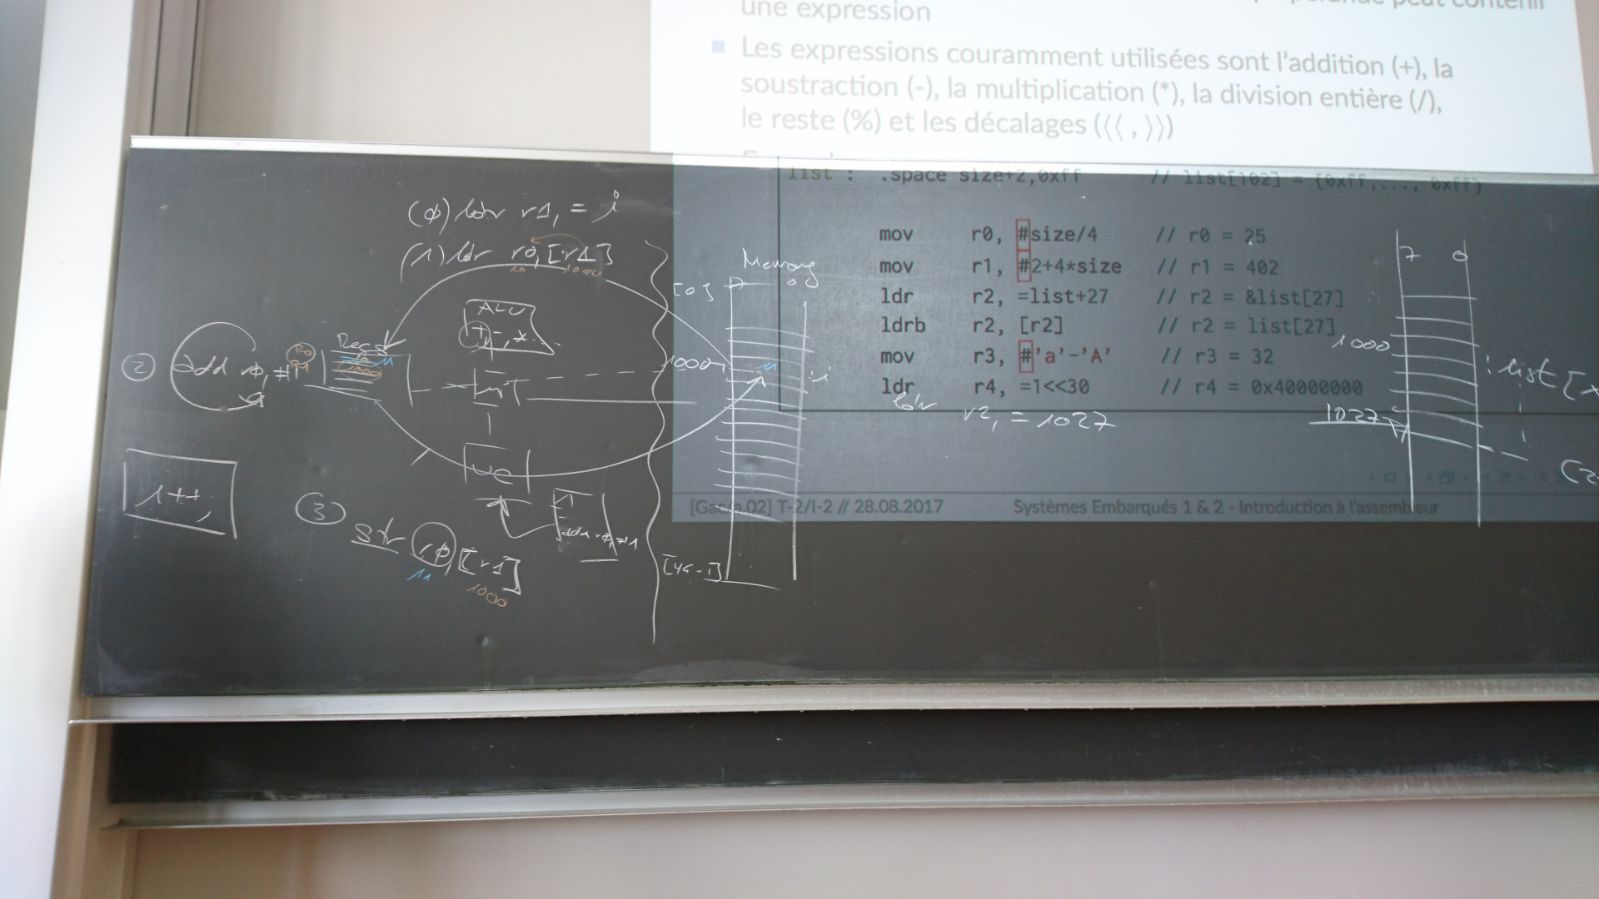 une expression
peut contenir
Les expressions couramment utilisées sont l'addition (+), la
soustraction (-), la multiplication (*), la division entière (/),
le reste (%) et les décalages (⟨⟨ , ⟩⟩)
list : .space size+2,0xff // list[102] = {0xff,..., 0xff}
mov r0, #size/4 // r0 = 25
mov r1, #2+4*size // r1 = 402
ldr r2, =list+27 // r2 = &list[27]
ldrb r2, [r2] // r2 = list[27]
mov r3, #'a'-'A' // r3 = 32
ldr r4, =1<<30 // r4 = 0x40000000
ldr r2, = 1027
T-2/I-2 // 28.08.2017 Systèmes Embarqués 1 & 2 - Introduction à l'assembleur
(0) ldr r1, = i
(1) ldr r0, [r1]
10 1000
ALU
+, -, *
② add r0, #1
1000
INT
UC
add r0, #1
i++;
③ str r0, [r1]
11 1000
Memory
[0] 7 0
1000 11 : i
[4G-1]
7 0
1000
: list
1027